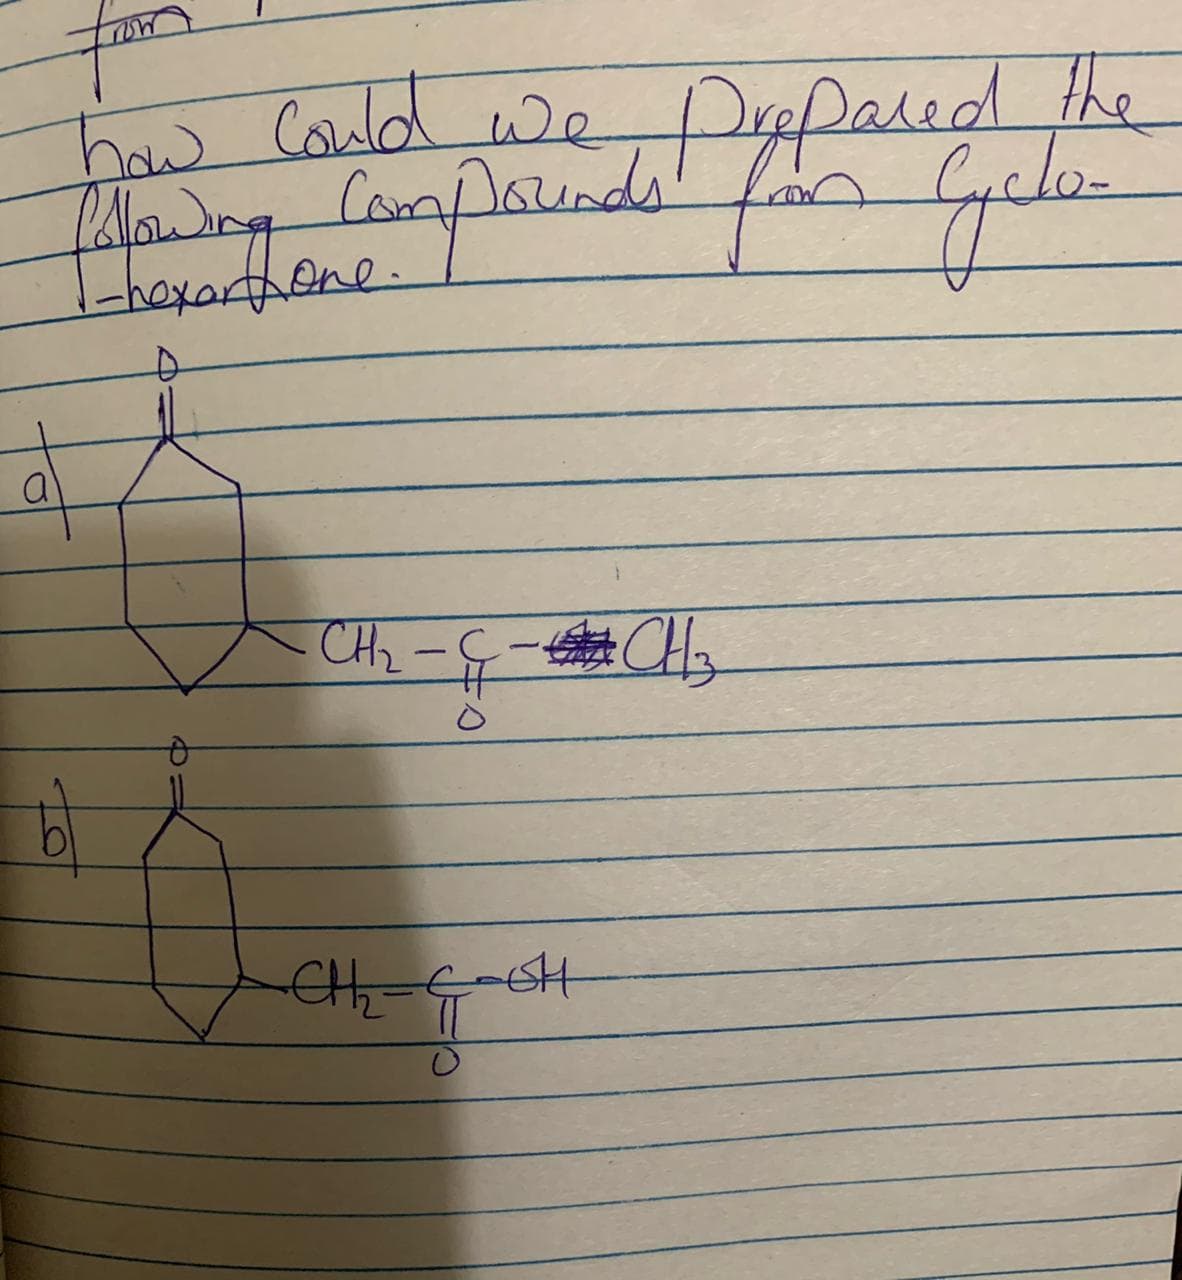 from
how could we prepared the
following compounds from Cyclo-
-hexanone.
O
a)
CH2 - C - CH3
O
O
b)
CH2 - C - OH
O